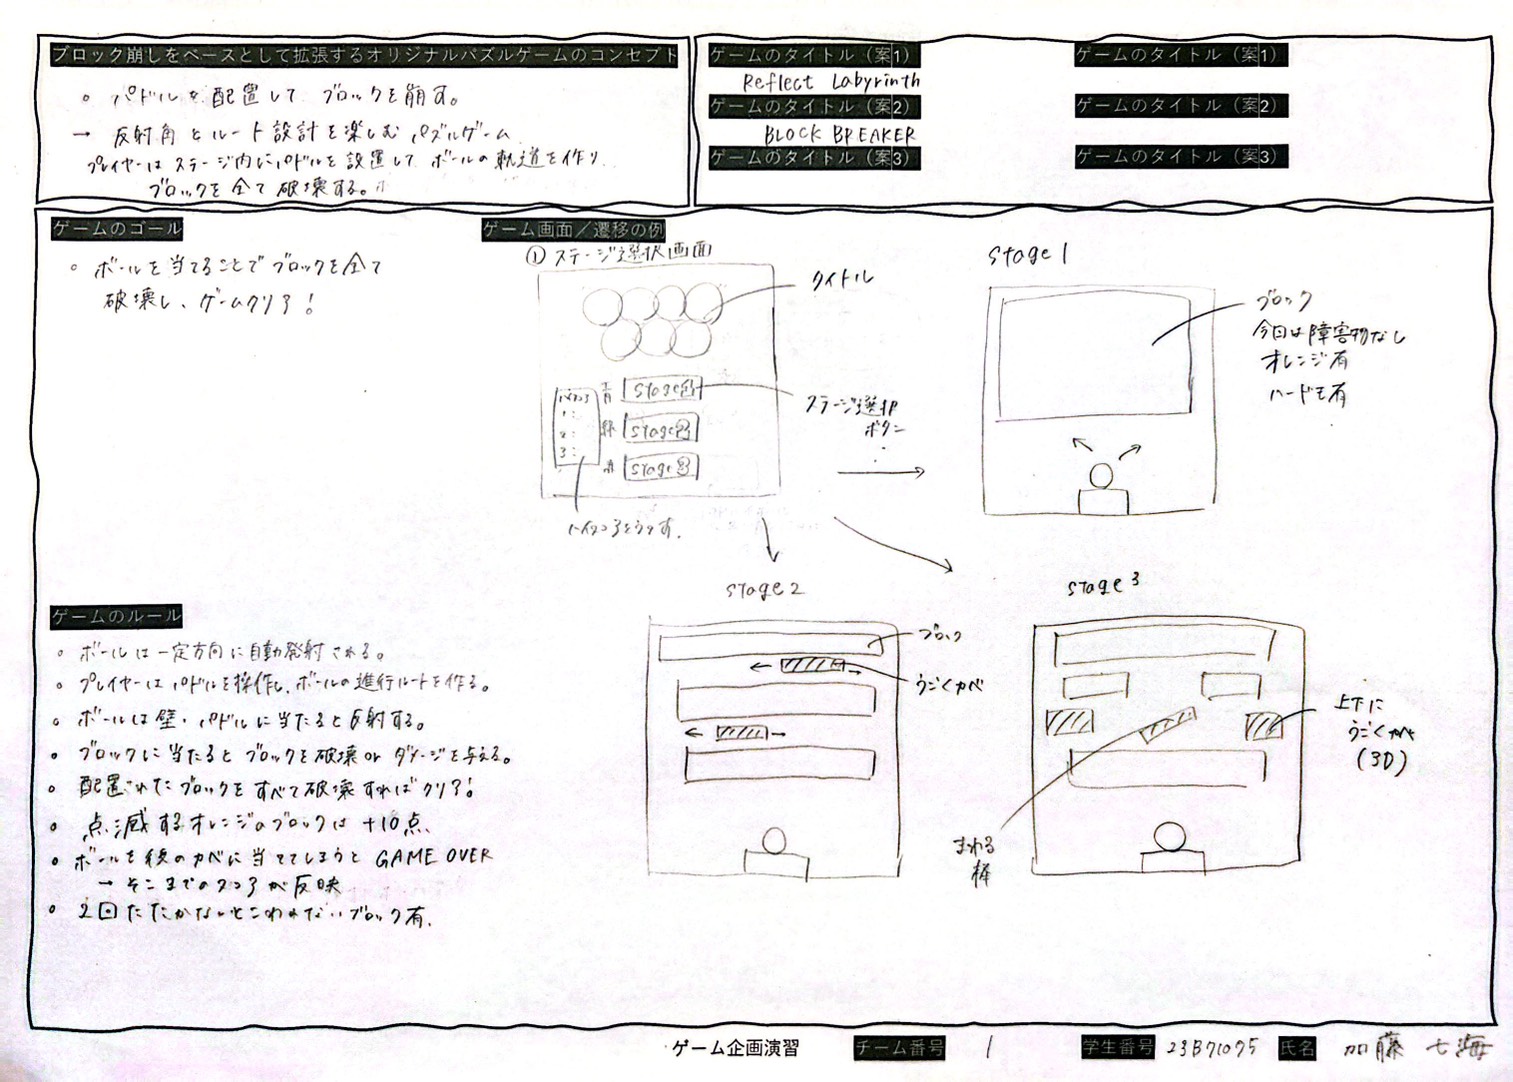 ブロック崩しをベースとして拡張するオリジナルパズルゲームのコンセプト
○ パドルを配置して ブロックを崩す。
→ 反射角とルート設計を楽しむ パズルゲーム
プレイヤーは ステージ内にパドルを設置して ボールの軌道を作り
ブロックを全て破壊する。
ゲームのタイトル（案1）
Reflect Labyrinth
ゲームのタイトル（案2）
BLOCK BREAKER
ゲームのタイトル（案3）
ゲームのタイトル（案1）
ゲームのタイトル（案2）
ゲームのタイトル（案3）
ゲームのゴール
○ ボールを当てることでブロックを全て
破壊し、ゲームクリア！
ゲーム画面／遷移の例
① ステージ選択画面
タイトル
ハイスコア
1:
2:
3:
青 stage1
緑 stage2
赤 stage3
ステージ選択
ボタン
ハイスコアをうつす.
stage 1
ブロック
今回は障害物なし
オレンジ有
ハードモ有
stage 2
ブロック
うごくカベ
stage 3
上下に
うごくカベ
(3D)
まわる
棒
ゲームのルール
○ ボールは一定方向に自動発射される。
○ プレイヤーはパドルを操作し、ボールの進行ルートを作る。
○ ボールは壁・パドルに当たると反射する。
○ ブロックに当たるとブロックを破壊 or ダメージを与える。
○ 配置されたブロックをすべて破壊すればクリア！
○ 点滅するオレンジのブロックは +10点
○ ボールを後のカベに当ててしまうと GAME OVER
→ そこまでのスコアが反映
○ 2回たたかないとこわれないブロック有.
ゲーム企画演習
チーム番号 1
学生番号 23B71075
氏名 加藤 七海